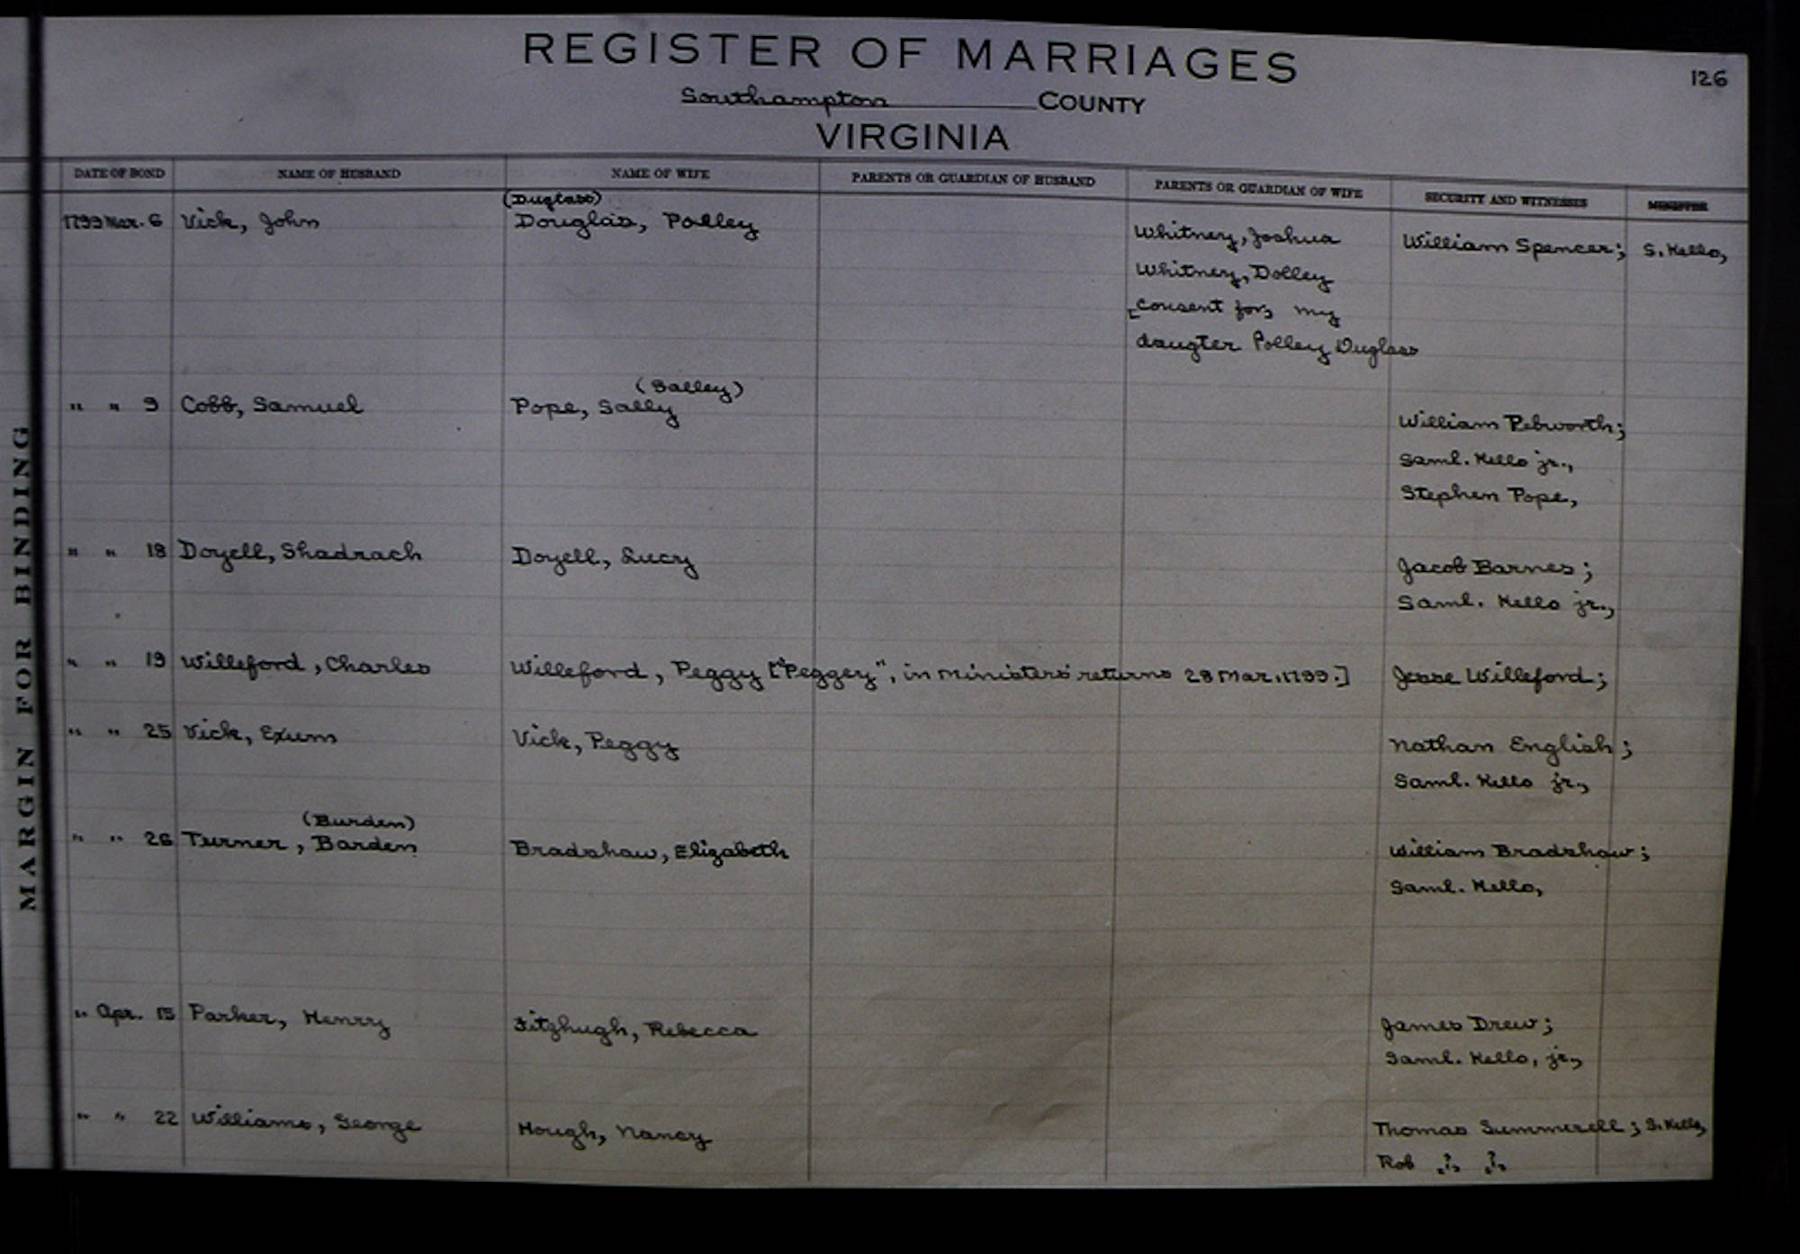 REGISTER OF MARRIAGES
126
Southampton COUNTY
VIRGINIA
MARGIN FOR BINDING
DATE OF BOND NAME OF HUSBAND NAME OF WIFE PARENTS OR GUARDIAN OF HUSBAND PARENTS OR GUARDIAN OF WIFE SECURITY AND WITNESSES MINISTER
(Duglass)
1799 Mar. 6 Vick, John Douglas, Polley Whitney, Joshua William Spencer; S. Kello,
Whitney, Dolley
[consent for, my
daugter Polley Duglass
(Salley)
" " 9 Cobb, Samuel Pope, Sally William Pebworth;
Saml. Kello jr.,
Stephen Pope,
" " 18 Doyell, Shadrach Doyell, Lucy Jacob Barnes;
Saml. Kello jr.,
" " 19 Willeford, Charles Willeford, Peggy ["Peggey", in ministers' returns 28 Mar. 1799.] Jesse Willeford;
" " 25 Vick, Exum Vick, Peggy Nathan English;
Saml. Kello jr.,
(Burden)
" " 26 Turner, Barden Bradshaw, Elizabeth William Bradshaw;
Saml. Kello,
" Apr. 15 Parker, Henry Fitzhugh, Rebecca James Drew;
Saml. Kello, jr.,
" " 22 Williams, George Hough, Nancy Thomas Summerell; S. Kello,
Rob ,?, ,?,